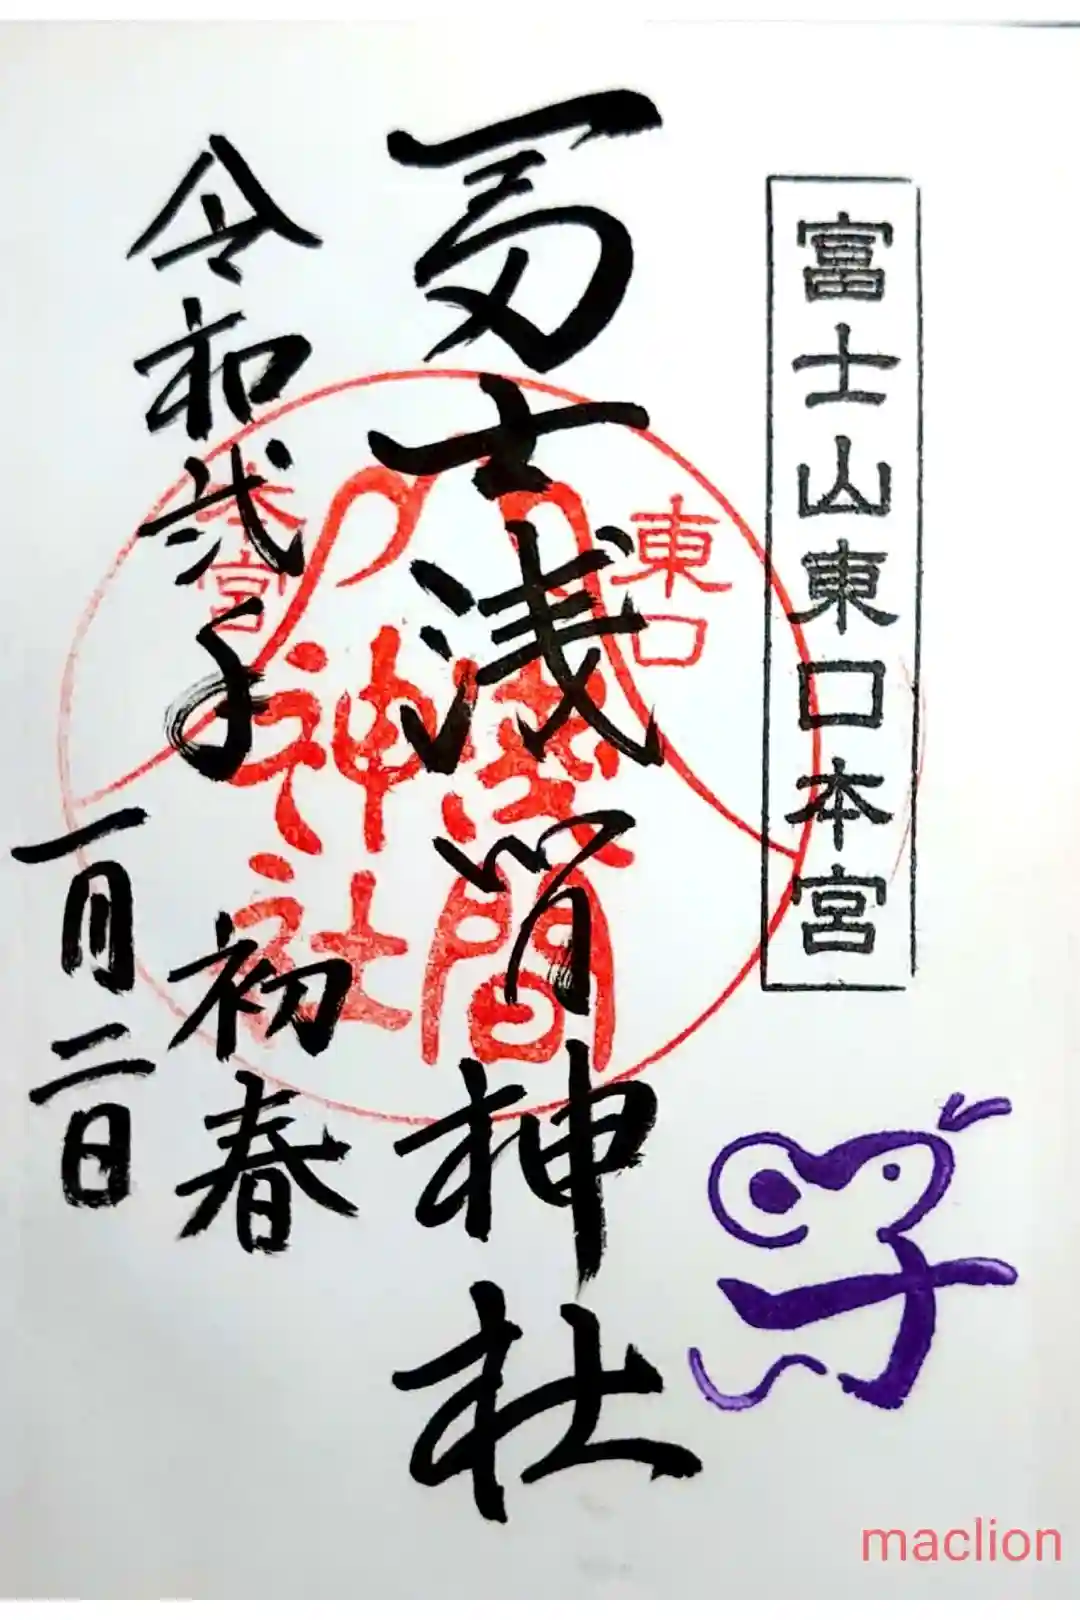 富士山東口本宮
冨士浅間神社
東口
本宮
浅間
神社
令和弐子初春
一月二日
子
maclion